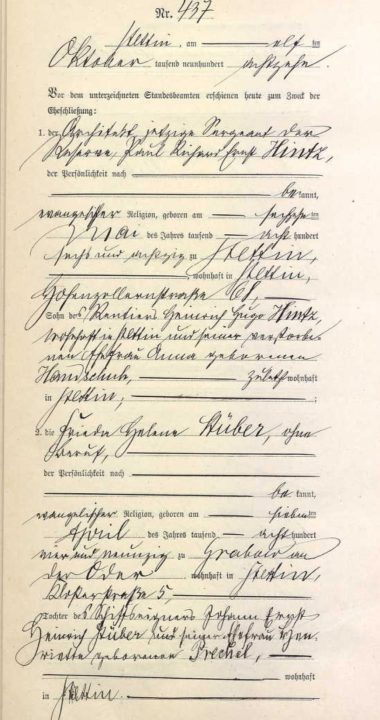 Nr. 437
Stettin, am elf ten
Oktober tausend neunhundert achtzehn.
Vor dem unterzeichneten Standesbeamten erschienen heute zum Zweck der
Eheschließung:
1. der Architekt, jetzige Sergeant der
Reserve, Paul Richard Ernst Hintz,
der Persönlichkeit nach
be kannt,
evangelischer Religion, geboren am sechsten
Mai des Jahres tausend acht hundert
sechs und achtzig zu Stettin,
, wohnhaft in Stettin,
Hohenzollernstraße 68,
Sohn des Rentiers Heinrich Hugo Hintz,
wohnhaft in Stettin und seiner verstorbe-
nen Ehefrau Anna geborenen
Handschuh, zuletzt wohnhaft
in Stettin, ;
2. die Frieda Helene Stüber, ohne
Beruf,
der Persönlichkeit nach
be kannt,
evangelischer Religion, geboren am sieben ten
April des Jahres tausend acht hundert
vier und neunzig zu Grabow an
der Oder wohnhaft in Stettin,
Klosterstraße 5,
Tochter des Schiffseigners Johann Ernst
Heinrich Stüber und seiner Ehefrau Hen-
riette geborenen Prechel,
wohnhaft
in Stettin.